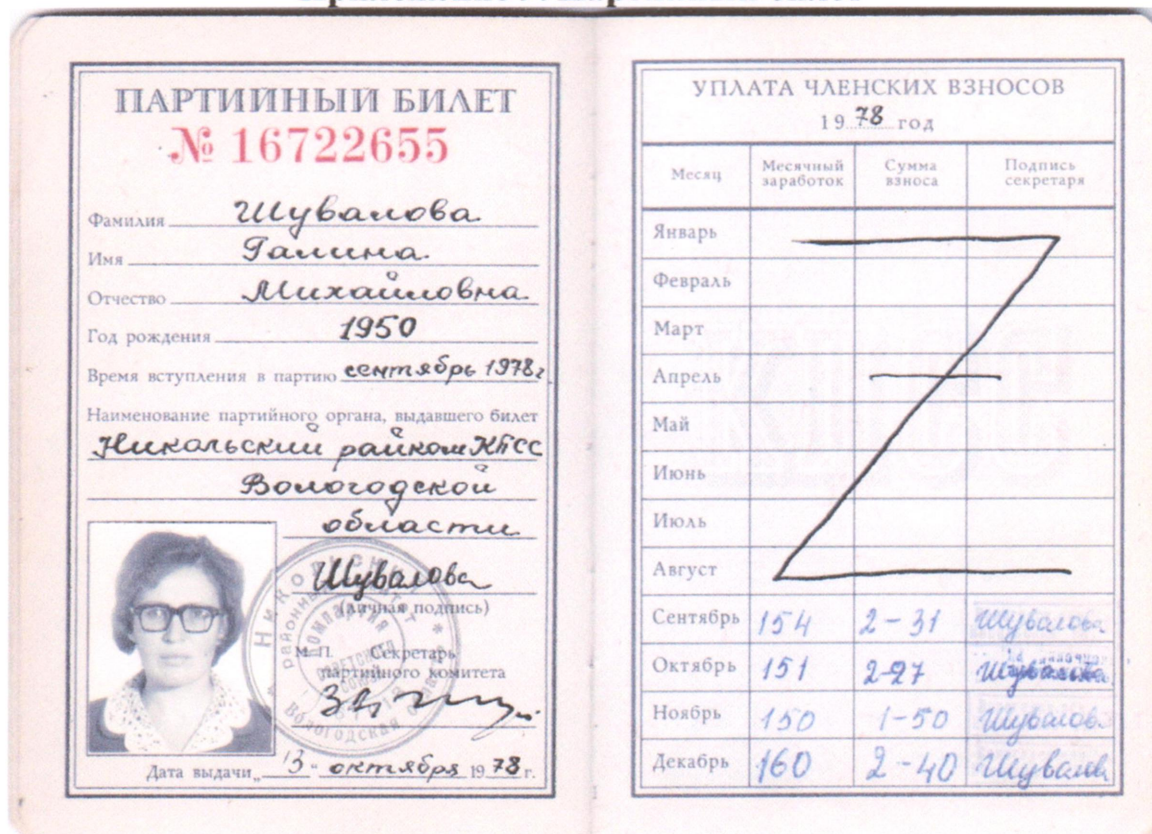 ПАРТИЙНЫЙ БИЛЕТ
№ 16722655
Фамилия Шувалова
Имя Галина
Отчество Михайловна
Год рождения 1950
Время вступления в партию сентябрь 1978г
Наименование партийного органа, выдавшего билет
Никольский райком КПСС
Вологодской
области
Шувалова
(личная подпись)
М. П. Секретарь
партийного комитета
Дата выдачи „13“ октября 1978 г.
УПЛАТА ЧЛЕНСКИХ ВЗНОСОВ
1978 год
Месяц Месячный заработок Сумма взноса Подпись секретаря
Январь
Февраль
Март
Апрель
Май
Июнь
Июль
Август
Сентябрь 154 2-31 Шувалова
Октябрь 151 2-27 Шувалова
Ноябрь 150 1-50 Шувалова
Декабрь 160 2-40 Шувалова